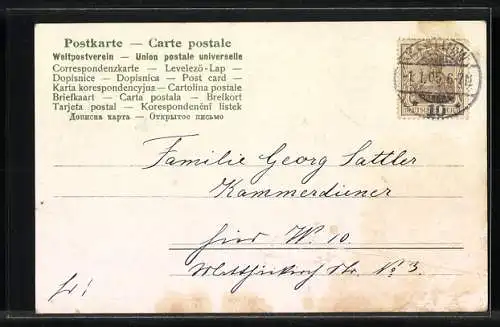 Postkarte — Carte postale
Weltpostverein — Union postale universelle
Correspondenzkarte — Levelező-Lap —
Dopisnice — Dopisnica — Post card —
Karta korespondencyjna — Cartolina postale
Briefkaart — Carta postala — Brefkort
Tarjeta postal — Korespondenční lístek
Дописна карта — Открытое письмо
1.1.05
Familie Georg Sattler
Kammerdiener
hier W. 10.
Str. No 3.